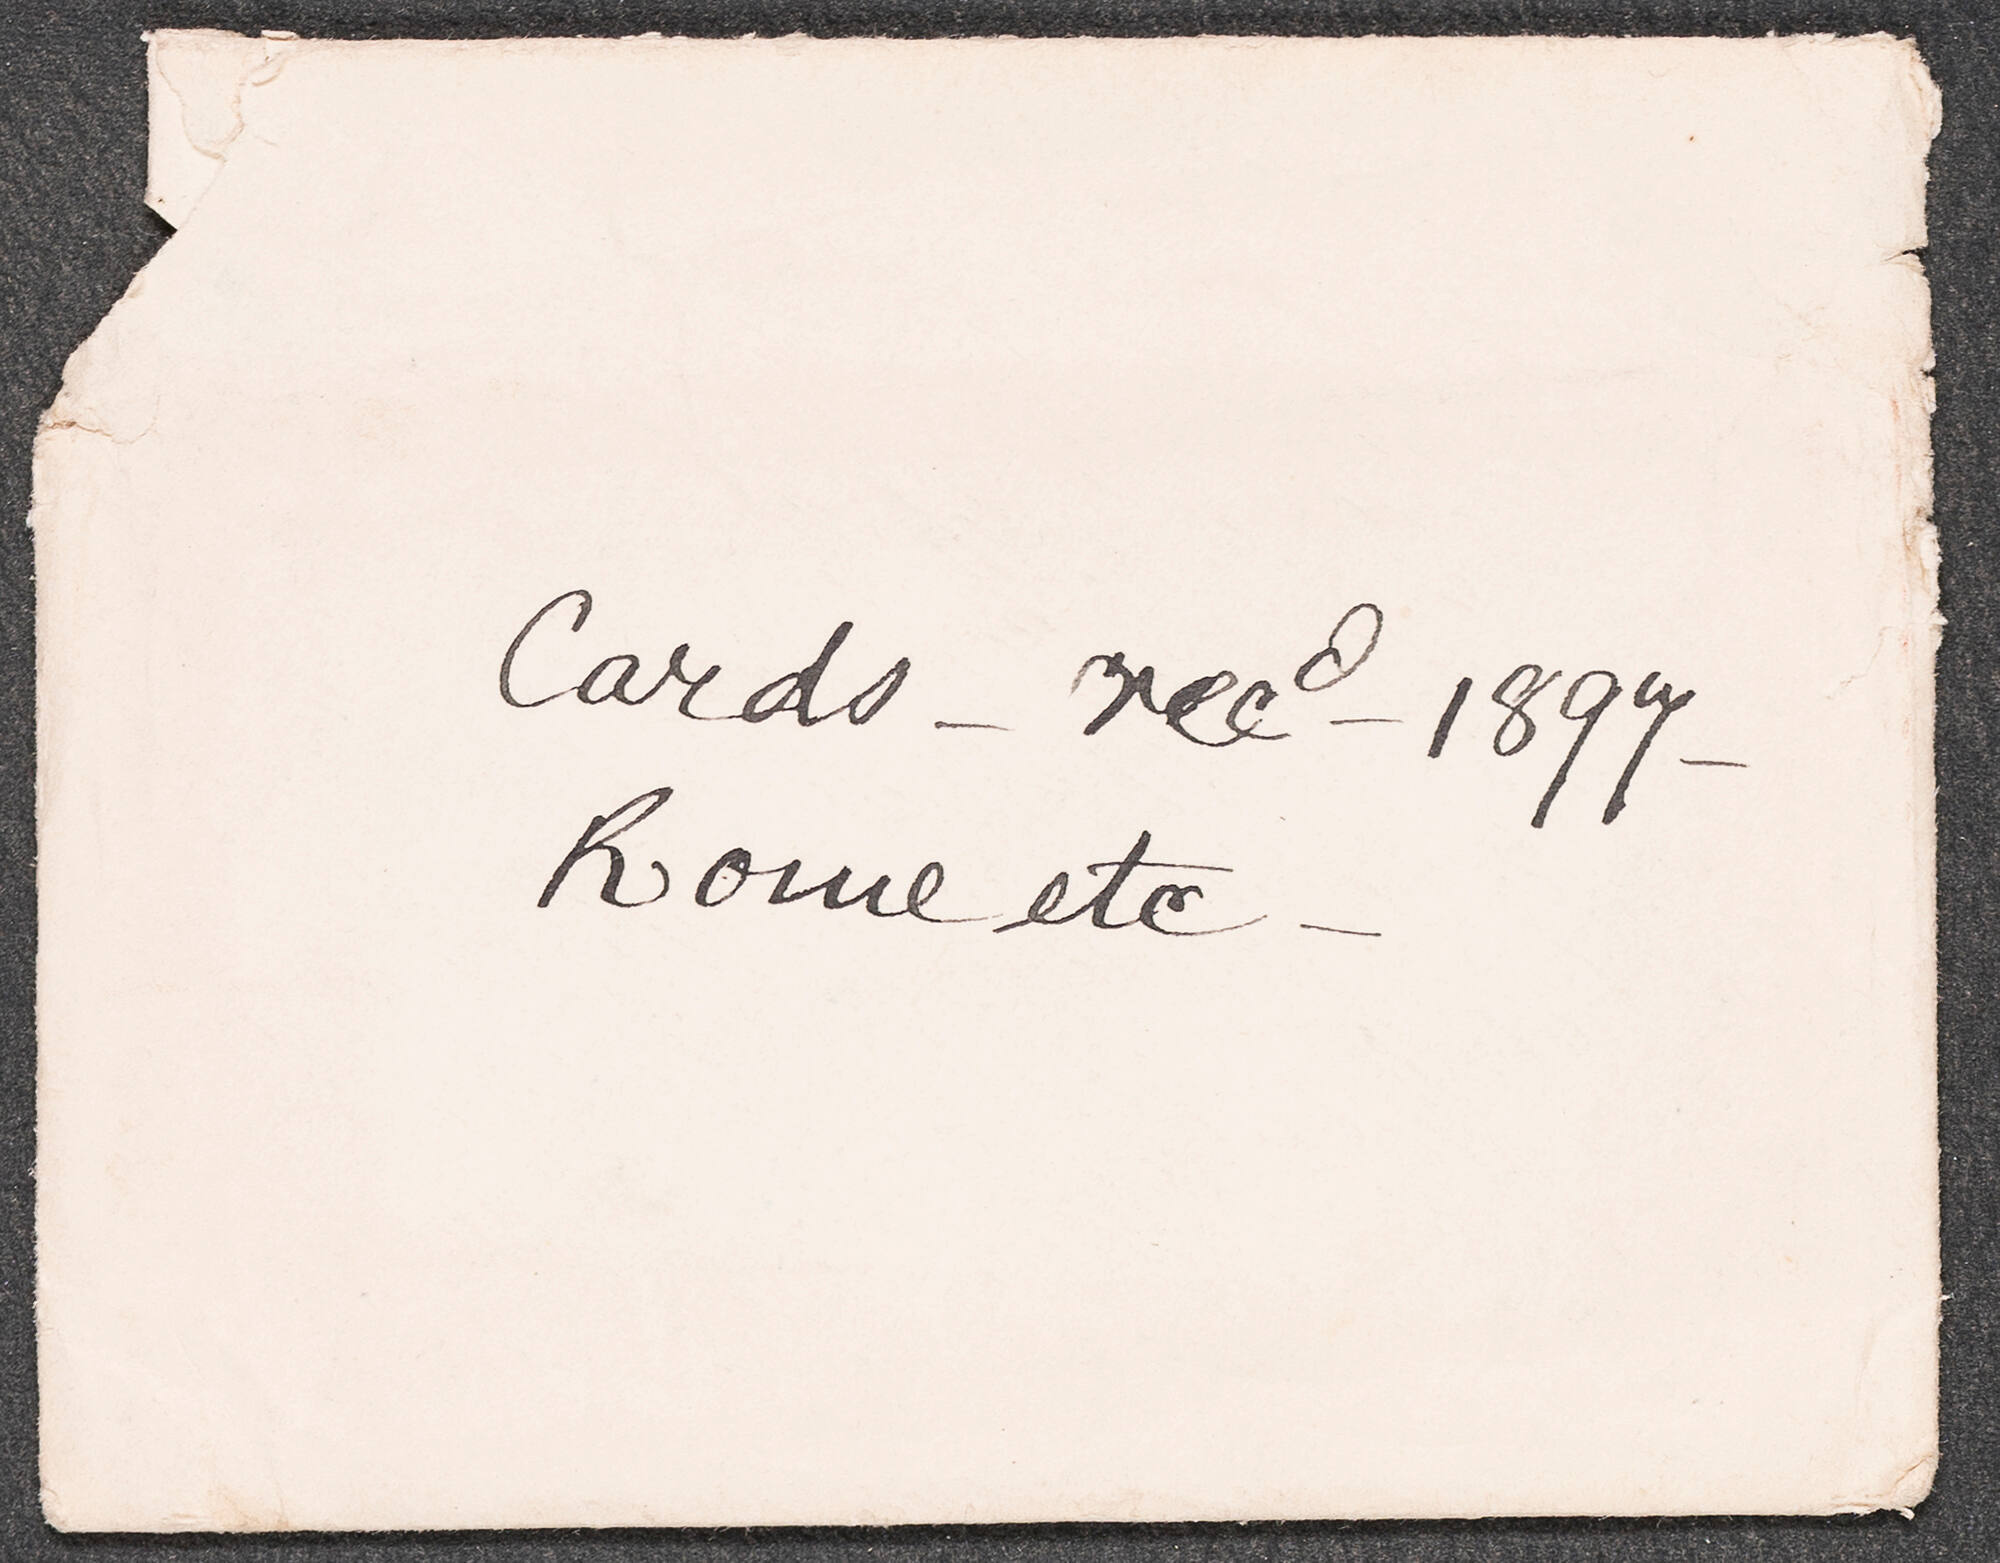 Cards - recd - 1897 -
Rome etc -